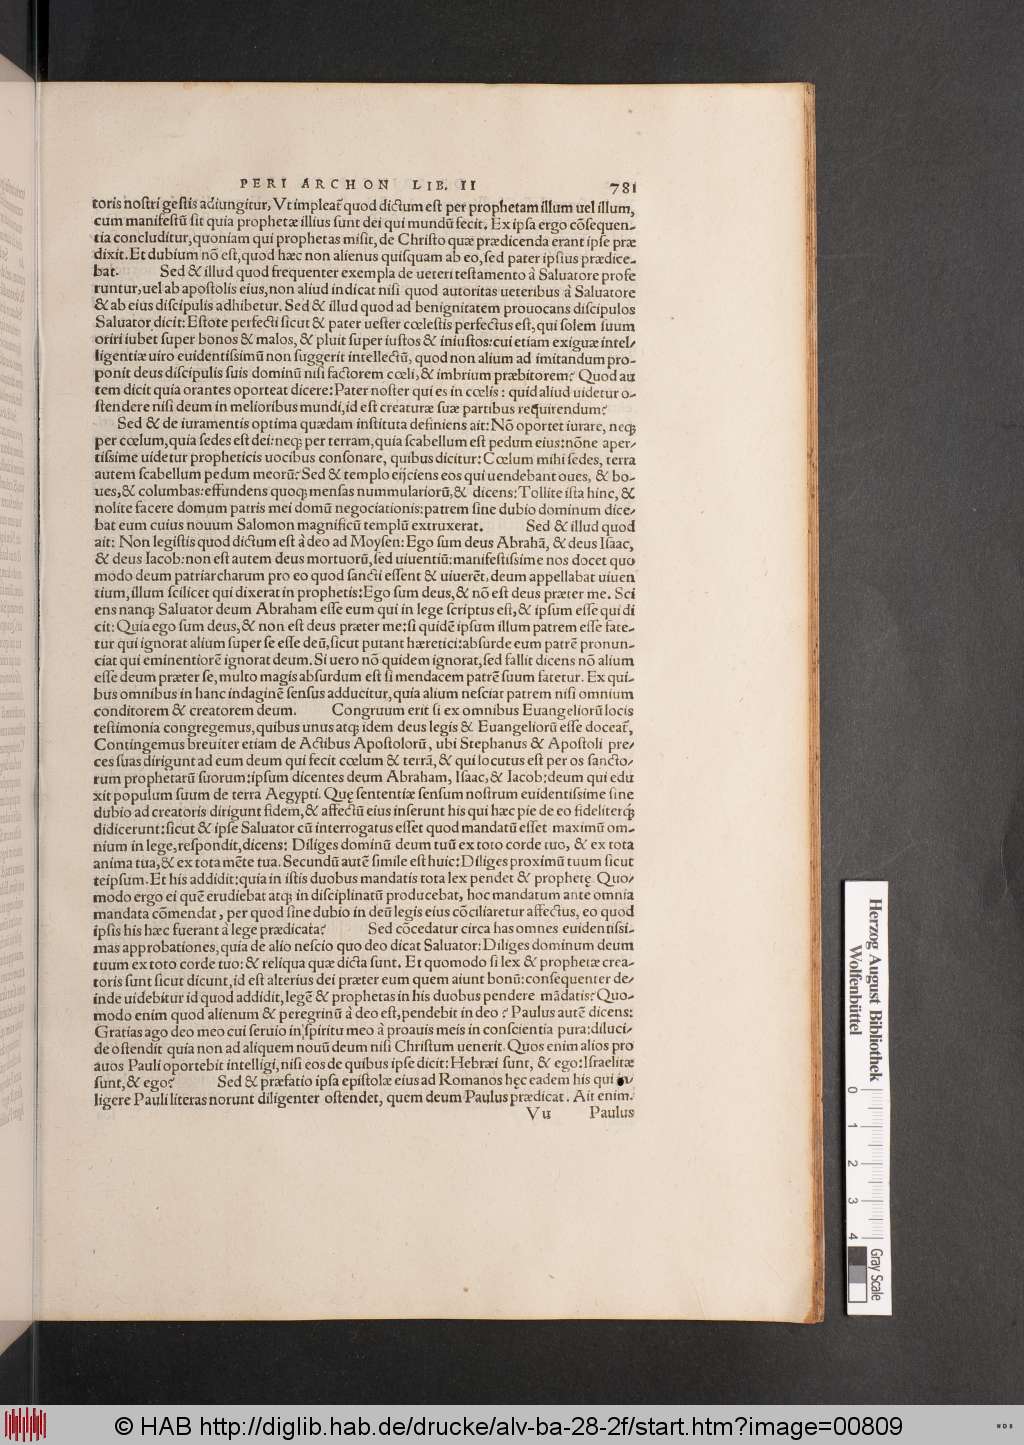 PERI ARCHON LIB. II 781
toris noſtri geſtis adiungitur, Vt impleat̃ quod dictum eſt per prophetam illum uel illum,
cum manifeſtũ ſit quia prophetæ illius ſunt dei qui mundũ fecit. Ex ipſa ergo cõſequen-
tia concluditur, quoniam qui prophetas miſit, de Chriſto quæ prædicenda erant ipſe præ
dixit. Et dubium nõ eſt, quod hæc non alienus quiſquam ab eo, ſed pater ipſius prædice-
bat. Sed & illud quod frequenter exempla de ueteri teſtamento à Saluatore profe
runtur, uel ab apoſtolis eius, non aliud indicat niſi quod autoritas ueteribus à Saluatore
& ab eius diſcipulis adhibetur. Sed & illud quod ad benignitatem prouocans diſcipulos
Saluator dicit: Eſtote perfecti ſicut & pater ueſter cœleſtis perfectus eſt, qui ſolem ſuum
oriri iubet ſuper bonos & malos, & pluit ſuper iuſtos & iniuſtos: cui etiam exiguæ intel-
ligentiæ uiro euidentiſsimũ non ſuggerit intellectũ, quod non alium ad imitandum pro-
ponit deus diſcipulis ſuis dominũ niſi factorem cœli, & imbrium præbitorem? Quod au
tem dicit quia orantes oporteat dicere: Pater noſter qui es in cœlis: quid aliud uidetur o-
ſtendere niſi deum in melioribus mundi, id eſt creaturæ ſuæ partibus requirendum?
Sed & de iuramentis optima quædam inſtituta definiens ait: Nõ oportet iurare, neq;
per cœlum, quia ſedes eſt dei: neq; per terram, quia ſcabellum eſt pedum eius: nõne aper-
tiſsime uidetur propheticis uocibus conſonare, quibus dicitur: Cœlum mihi ſedes, terra
autem ſcabellum pedum meorũ? Sed & templo eijciens eos qui uendebant oues, & bo-
ues, & columbas: effundens quoq; menſas nummulariorũ, & dicens: Tollite iſta hinc, &
nolite facere domum patris mei domũ negociationis: patrem ſine dubio dominum dice-
bat eum cuius nouum Salomon magnificũ templũ extruxerat. Sed & illud quod
ait: Non legiſtis quod dictum eſt à deo ad Moyſen: Ego ſum deus Abrahã, & deus Iſaac,
& deus Iacob: non eſt autem deus mortuorũ, ſed uiuentiũ: manifeſtiſsime nos docet quo
modo deum patriarcharum pro eo quod ſancti eſſent & uiuerẽt, deum appellabat uiuen
tium, illum ſcilicet qui dixerat in prophetis: Ego ſum deus, & nõ eſt deus præter me. Sci
ens nanq; Saluator deum Abraham eſſe eum qui in lege ſcriptus eſt, & ipſum eſſe qui di
cit: Quia ego ſum deus, & non eſt deus præter me: ſi quidẽ ipſum illum patrem eſſe fate-
tur qui ignorat alium ſuper ſe eſſe deũ, ſicut putant hæretici: abſurde eum patrẽ pronun-
ciat qui eminentiorẽ ignorat deum. Si uero nõ quidem ignorat, ſed fallit dicens nõ alium
eſſe deum præter ſe, multo magis abſurdum eſt ſi mendacem patrẽ ſuum fatetur. Ex qui-
bus omnibus in hanc indaginẽ ſenſus adducitur, quia alium neſciat patrem niſi omnium
conditorem & creatorem deum. Congruum erit ſi ex omnibus Euangeliorũ locis
teſtimonia congregemus, quibus unus atq; idem deus legis & Euangeliorũ eſſe doceat̃,
Contingemus breuiter etiam de Actibus Apoſtolorũ, ubi Stephanus & Apoſtoli pre-
ces ſuas dirigunt ad eum deum qui fecit cœlum & terrã, & qui locutus eſt per os ſancto-
rum prophetarũ ſuorum: ipſum dicentes deum Abraham, Iſaac, & Iacob: deum qui edu
xit populum ſuum de terra Aegypti. Quę ſententiæ ſenſum noſtrum euidentiſsime ſine
dubio ad creatoris dirigunt fidem, & affectũ eius inſerunt his qui hæc pie de eo fideliterq;
didicerunt: ſicut & ipſe Saluator cũ interrogatus eſſet quod mandatũ eſſet maximũ om-
nium in lege, reſpondit, dicens: Diliges dominũ deum tuũ ex toto corde tuo, & ex tota
anima tua, & ex tota mẽte tua. Secundũ autẽ ſimile eſt huic: Diliges proximũ tuum ſicut
teipſum. Et his addidit: quia in iſtis duobus mandatis tota lex pendet & prophetę. Quo-
modo ergo ei quẽ erudiebat atq; in diſciplinatũ producebat, hoc mandatum ante omnia
mandata cõmendat, per quod ſine dubio in deũ legis eius cõciliaretur affectus, eo quod
ipſis his hæc fuerant à lege prædicata? Sed cõcedatur circa has omnes euidentiſsi-
mas approbationes, quia de alio neſcio quo deo dicat Saluator: Diliges dominum deum
tuum ex toto corde tuo: & reliqua quæ dicta ſunt. Et quomodo ſi lex & prophetæ crea-
toris ſunt ſicut dicunt, id eſt alterius dei præter eum quem aiunt bonũ: conſequenter de-
inde uidebitur id quod addidit, legẽ & prophetas in his duobus pendere mãdatis? Quo-
modo enim quod alienum & peregrinũ à deo eſt, pendebit in deo? Paulus autẽ dicens:
Gratias ago deo meo cui ſeruio in ſpiritu meo à proauis meis in conſcientia pura: diluci-
de oſtendit quia non ad aliquem nouũ deum niſi Chriſtum uenerit. Quos enim alios pro
auos Pauli oportebit intelligi, niſi eos de quibus ipſe dicit: Hebræi ſunt, & ego: Iſraelitæ
ſunt, & ego? Sed & præfatio ipſa epiſtolæ eius ad Romanos hęc eadem his qui
ligere Pauli literas norunt diligenter oſtendet, quem deum Paulus prædicat. Ait enim:
Vu Paulus
Herzog August Bibliothek
Wolfenbüttel
0 1 2 3 4
Gray Scale
© HAB http://diglib.hab.de/drucke/alv-ba-28-2f/start.htm?image=00809